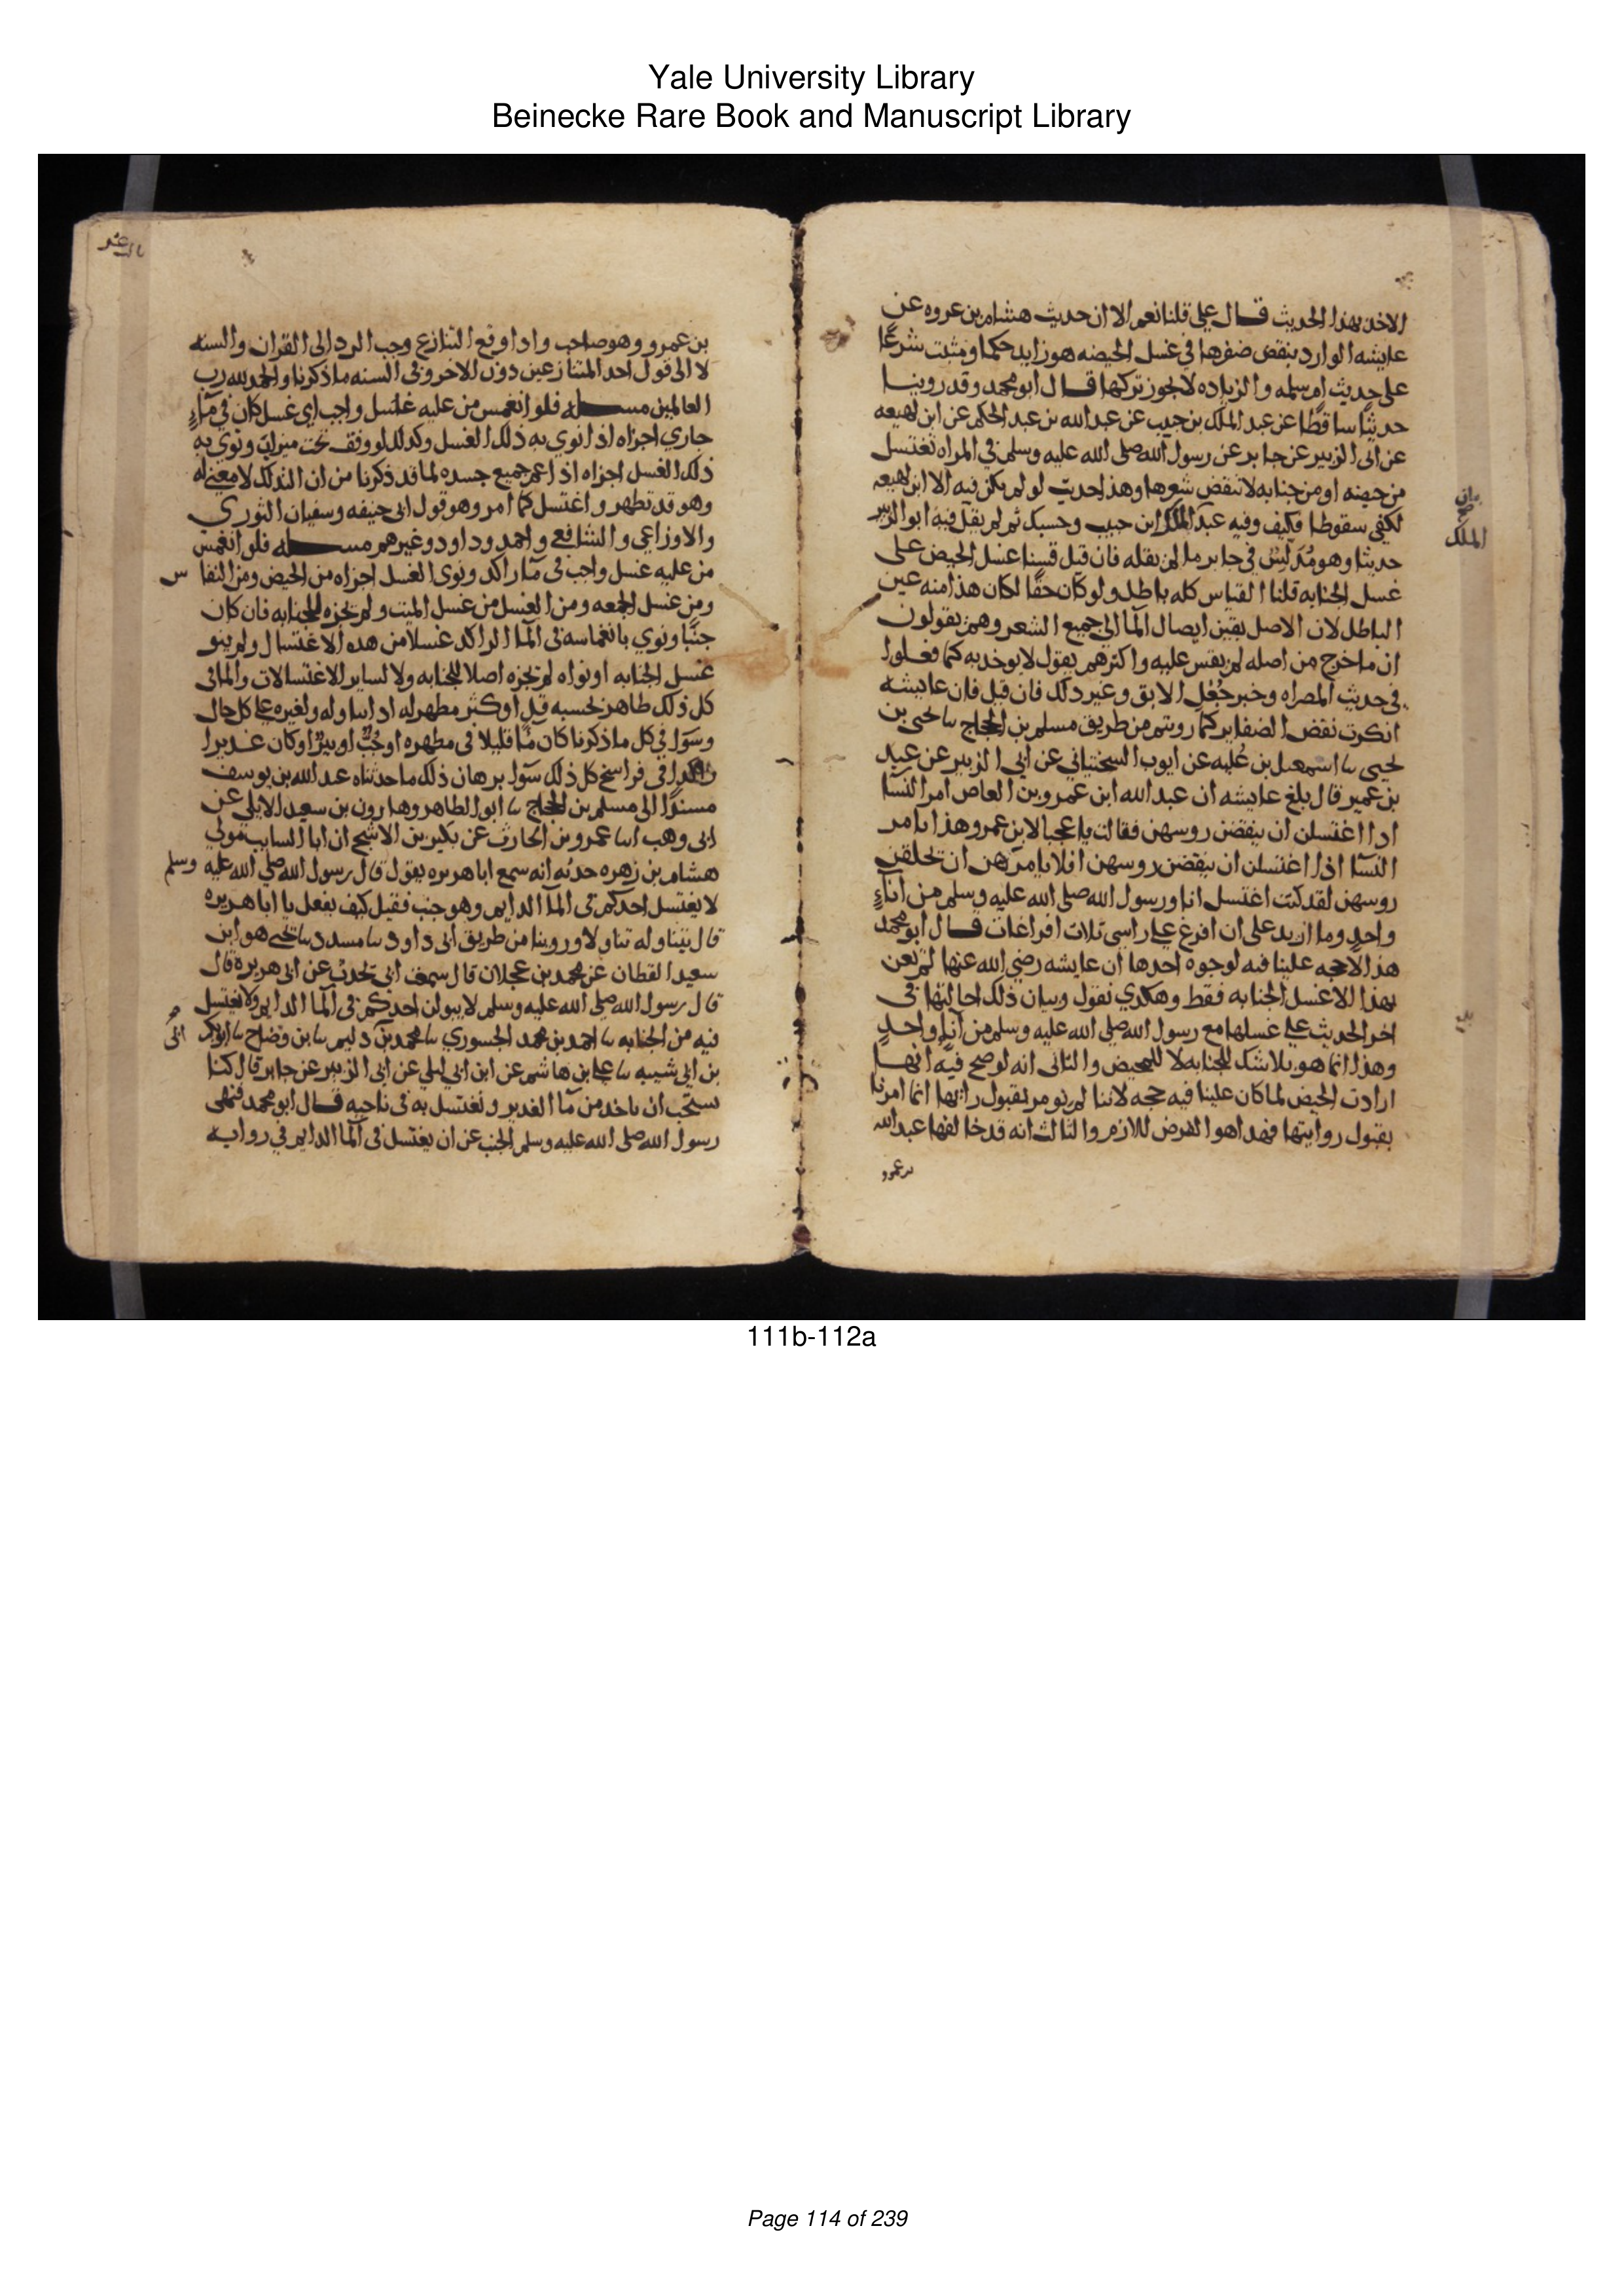 Yale University Library
Beinecke Rare Book and Manuscript Library
الاخذ بهذا الحديث قال علي قلنا نعم الا ان حديث هشام بن عروه عن
عايشه الوارد بنقض ضفرها في غسل الحيضه هو زايد حكما ومثبت شرعا
على حديث ام سلمه والزياده لا يجوز تركها قال ابو محمد وقد روينا
حديثا ساقطا عن عبد الملك بن حبيب عن عبد الله بن عبد الحكم عن ابن لهيعه
عن ابى الزبير عن جابر عن رسول الله صلى الله عليه وسلم في المراه تغتسل
من حيضه او من جنابه لا تنقض شعرها وهذا حديث لو لم يكن فيه الا ابن لهيعه
لكفى سقوطا فكيف وفيه عبد الملك ابن حبيب وحسبك ثم لم يقل فيه ابو الزبير
حديثا وهو مدلس في جابر ما لم يقله فان قيل قسنا غسل الحيض على
غسل الجنابه قلنا القياس كله باطل ولو كان حقا لكان هذا منه عين
الباطل لان الاصل يقين ايصال الما الى جميع الشعر وهم يقولون
ان ما خرج من اصله لم يقس عليه واكثرهم يقول لا يوخذ به كما فعلوا
في حديث المصراه وخبر جعل الابق وغير ذلك فان قيل فان عايشه
انكرت نقض الضفاير كما رويتم من طريق مسلم بن الحجاج نا يحيى بن
يحيى نا اسمعيل بن علية عن ايوب السختياني عن ابي الزبير عن عبيد
بن عمير قال بلغ عايشه ان عبد الله ابن عمرو بن العاص امر النسا
اذا اغتسلن ان ينقضن روسهن فقالت يا عجبا لابن عمرو هذا يامر
النسا اذا اغتسلن ان ينقضن روسهن افلا يامرهن ان يحلقن
روسهن لقد كنت اغتسل انا ورسول الله صلى الله عليه وسلم من اناء
واحد وما ازيد على ان افرغ على راسي ثلاث افراغات قال ابو محمد
هذا لا حجه علينا فيه لوجوه احدها ان عايشه رضي الله عنها لم تعن
بهذا الا غسل الجنابه فقط وهكذى نقول وبيان ذلك احالتها في
اخر الحديث على غسلها مع رسول الله صلى الله عليه وسلم من اناء واحد
وهذا انما هو بلا شك للجنابه لا للمحيض والثانى انه لو صح فيه انها
ارادت الحيض لما كان علينا فيه حجه لاننا لم نومر بقبول رايها انما امرنا
بقبول روايتها فهذا هو الفرض اللازم والثالث انه قد خالفها عبد الله
بن عمرو
الملك
بن عمرو وهو صاحب واذا وقع التنازع وجب الرد الى القران والسنه
لا الى قول احد المتنازعين دون الاخر وفي السنه ما ذكرنا والحمد لله رب
العالمين مسله فلو انغمس من عليه غسل واجب اي غسل كان في ماء
جاري اجزاه اذا نوي به ذلك الغسل وكذلك لو وقف تحت ميزاب ونوي به
ذلك الغسل اجزاه اذا عم جميع جسده لما قد ذكرنا من ان التدلك لا معنى له
وهو قد تطهر واغتسل كما امر وهو قول ابى حنيفه وسفيان الثوري
والاوزاعي والشافعي واحمد وداود وغيرهم مسله فلو انغمس
من عليه غسل واجب فى ما راكد ونوى الغسل اجزاه من الحيض ومن النفاس
ومن غسل الجمعه ومن الغسل من غسل الميت ولم يجزه للجنابه فان كان
جنبا ونوي بانغماسه في الما الراكد غسلا من هذه الاغتسال ولم ينو
غسل الجنابه او نواه لم يجزه اصلا للجنابه ولا لساير الاغتسالات والما فى
كل ذلك طاهر بحسبه قل او كثر مطهر له اذا تناوله ولغيره على كل حال
وسوا في كل ما ذكرنا كان ما قليلا في مطهره او جب او بير او كان غديرا
راكدا في فراسخ كل ذلك سوا برهان ذلك ما حدثناه عبد الله بن يوسف
مسندا الى مسلم بن الحجاج نا ابو الطاهر وهارون بن سعيد الايلي عن
ابى وهب انا عمرو بن الحارث عن بكير بن الاشج ان ابا السايب مولى
هشام بن زهره حدثه انه سمع ابا هريره يقول قال رسول الله صلى الله عليه وسلم
لا يغتسل احدكم في الما الدايم وهو جنب فقيل كيف يفعل يا ابا هريره
قال يتناوله تناولا وروينا من طريق ابى داود نا مسدد نا يحيى هو ابن
سعيد القطان عن محمد بن عجلان قال سمعت ابي يحدث عن ابى هريره قال
قال رسول الله صلى الله عليه وسلم لا يبولن احدكم في الما الدايم ولا يغتسل
فيه من الجنابه نا احمد بن محمد الجسوري نا محمد بن دليم نا ابن وضاح نا ابو بكر
بن ابى شيبه نا علي بن هاشم عن ابن ابى ليلى عن ابى الزبير عن جابر قال كنا
نستحب ان ناخذ من ما الغدير ونغتسل به في ناحيه قال ابو محمد فنهى
رسول الله صلى الله عليه وسلم الجنب عن ان يغتسل فى الما الدايم في روايه
111b-112a
Page 114 of 239